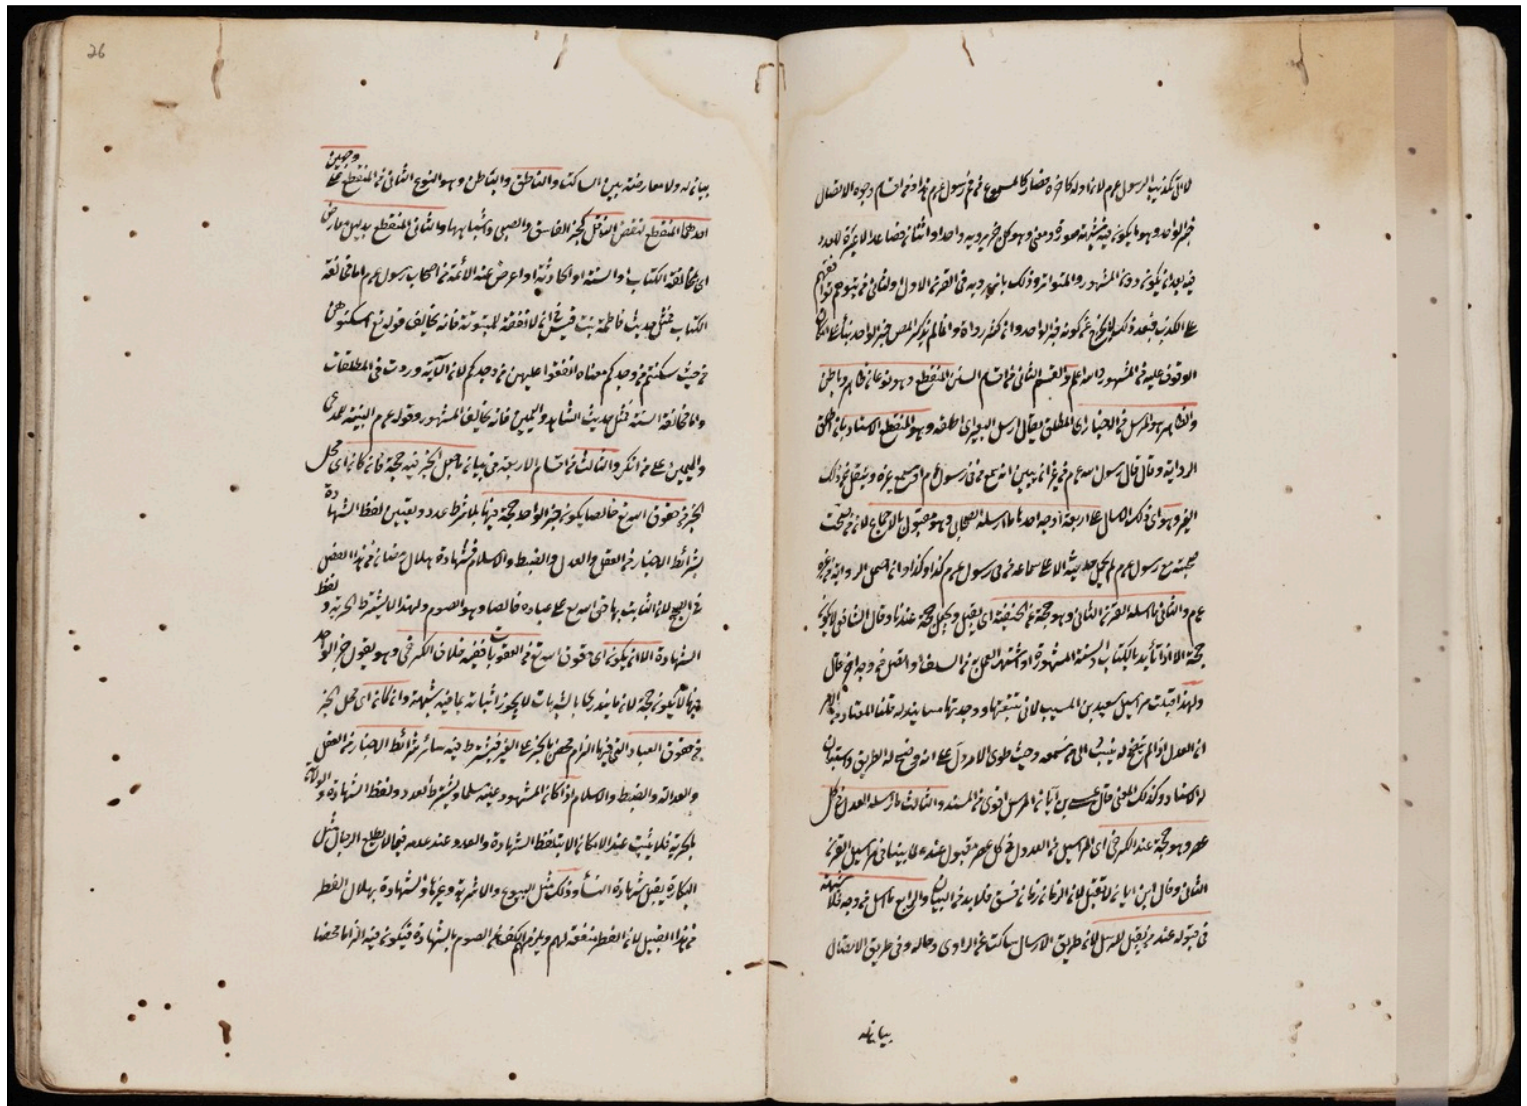 لا الى تكذيب الرسول عم لانه اوله كآخره فصار كالمسموع من رسول عم هذا من اقسام وجوه الاتصال
خبر الواحد وهو ما يكون فيه شبهة صورة ومعنى وهو كل خبر يرويه واحد او اثنان فصاعدا لا عبرة للعدد
فيه بعد ان يكون دون المشهور والمتواتر وذلك بان يرويه في القرن الاول والثاني من يتوهم توافقهم
على الكذب فبعد ذلك لا يخرج عن كونه خبر الواحد وان كثر رواته
الوقوف عليه في المشهور والقسم الثاني من اقسام السنن المنقطع وهو نوعان ظاهر وباطن
والظاهر هو المرسل من الاخبار اي المطلق يقال ارسل البعير اي اطلقه وهو المنقطع الاسناد بان اطلق
الرواية وقال قال رسول الله عم من غير ان يبين انه سمع من رسول عم او سمع غيره وينقل عن ذلك
الغير وهو اي ذلك ارسال على اربعة اوجه احدها ما ارسله الصحابي وهو مقبول بالاجماع لان من صحت
صحبته مع رسول عم لم يحمل حديثه الا على سماعه من رسول عم كذا وكذا وان احتمل الرواية عن غيره
عم والثاني ما ارسله القرن الثاني وهو حجة عند الحنفية اي يقبل ويجعل حجة عندنا وقال الشافعي لا يكون
حجة الا اذا تأيد بالكتاب او السنة المشهورة او اشتهر العمل به من السلف او اتصل من وجه آخر قال
ولهذا قبلت مراسيل سعيد بن المسيب لاني تتبعتها ووجدتها مسانيد له قلنا المعتاد من الامر
ان العدل اذا لم يتضح له ينسب الى من سمعه وحيث طوى الامر دل على انه وضح له الطريق واستبان
له الاسناد وكذلك المعنى قال عيسى بن ابان المرسل اقوى من المسند والثالث ما ارسله العدل في كل
عصر وهو حجة عند الكرخي اي المراسيل من العدول في كل عصر مقبول عنده لما بينا في مراسيل القرن
الثاني وقال ابن ابان لا يقبل لان الزمان زمان فسق فلا بد من البيان والرابع ما ارسل من وجه فلا شبهة
في قبوله عند من يقبل المرسل لان طريق الارسال ساكت عن الراوي وحاله وفي طريق الاتصال
بيانه
26
بيانه ولا معارضة بين الساكت والناطق والباطن وهو النوع الثاني من المنقطع على وجهين
احدهما المنقطع لنقص الناقل كخبر الفاسق والصبي واشباههما والثاني المنقطع بدليل معارض
اي بمخالفة الكتاب او السنة او الحادثة او اعرض عنه الأئمة من اصحاب رسول عم اما مخالفة
الكتاب فمثل حديث فاطمة بنت قيس في ان لا نفقة للمبتوتة فانه يخالف قوله تع اسكنوهن
من حيث سكنتم من وجدكم معناه انفقوا عليهن من وجدكم لان الآية وردت في المطلقات
واما مخالفة السنة فمثل حديث الشاهد واليمين فانه يخالف المشهور وقوله عم البينة للمدعي
واليمين على من انكر والثالث من اقسام الاربعة في بيان ما جعل الخبر فيه حجة فان كان اي محل
الخبر من حقوق الله تع خالصا يكون خبر الواحد حجة فيها بلا شرط عدد وتعيين لفظ الشهادة
بشرائط الاخبار من العقل والعدل والضبط والاسلام فشهادة بهلال رمضان من هذا الفصل
في الصحيح لان الثابت بها حق الله تع على عباده خالصا وهو الصوم ولهذا لا يشترط الحرية ولفظ
الشهادة الا ان يكون اي حقوق الله تع من العقوبات ففيه خلاف الكرخي وهو يقول خبر الواحد
فيها لا يكون حجة لان ما يندرئ بالشبهات لا يجوز اثباته بما فيه شبهة وان كان اي محل الخبر
من حقوق العباد التي فيها الزام محض بالخبر على الغير فيشترط فيه سائر شرائط الاخبار من العقل
والعدالة والضبط والاسلام اذا كان المشهود عليه مسلما ويشترط العدد ولفظ الشهادة والولاية
بالحرية فلا يثبت عند الامكان الا بلفظ الشهادة والعدد وعند عدمه فيما لا يطلع الرجال مثل
البكارة يقبل شهادة النسأ وذلك مثل البيوع والاشربة وغيرها والشهادة بهلال الفطر
من هذا القبيل لان الفطر منفعة لهم ويلزمهم الكف عن الصوم بالشهادة فيكون فيه الزاما محضا